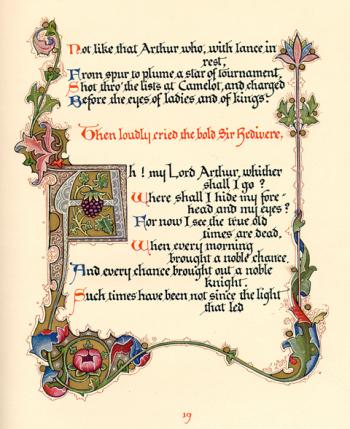 Not like that Arthur who, with lance in
rest,
From spur to plume a star of tournament,
Shot thro' the lists at Camelot, and charged
Before the eyes of ladies and of kings.
Then loudly cried the bold Sir Bedivere,
Ah! my Lord Arthur, whither
shall I go?
Where shall I hide my fore-
head and my eyes?
For now I see the true old
times are dead,
When every morning
brought a noble chance,
And every chance brought out a noble
knight.
Such times have been not since the light
that led
19